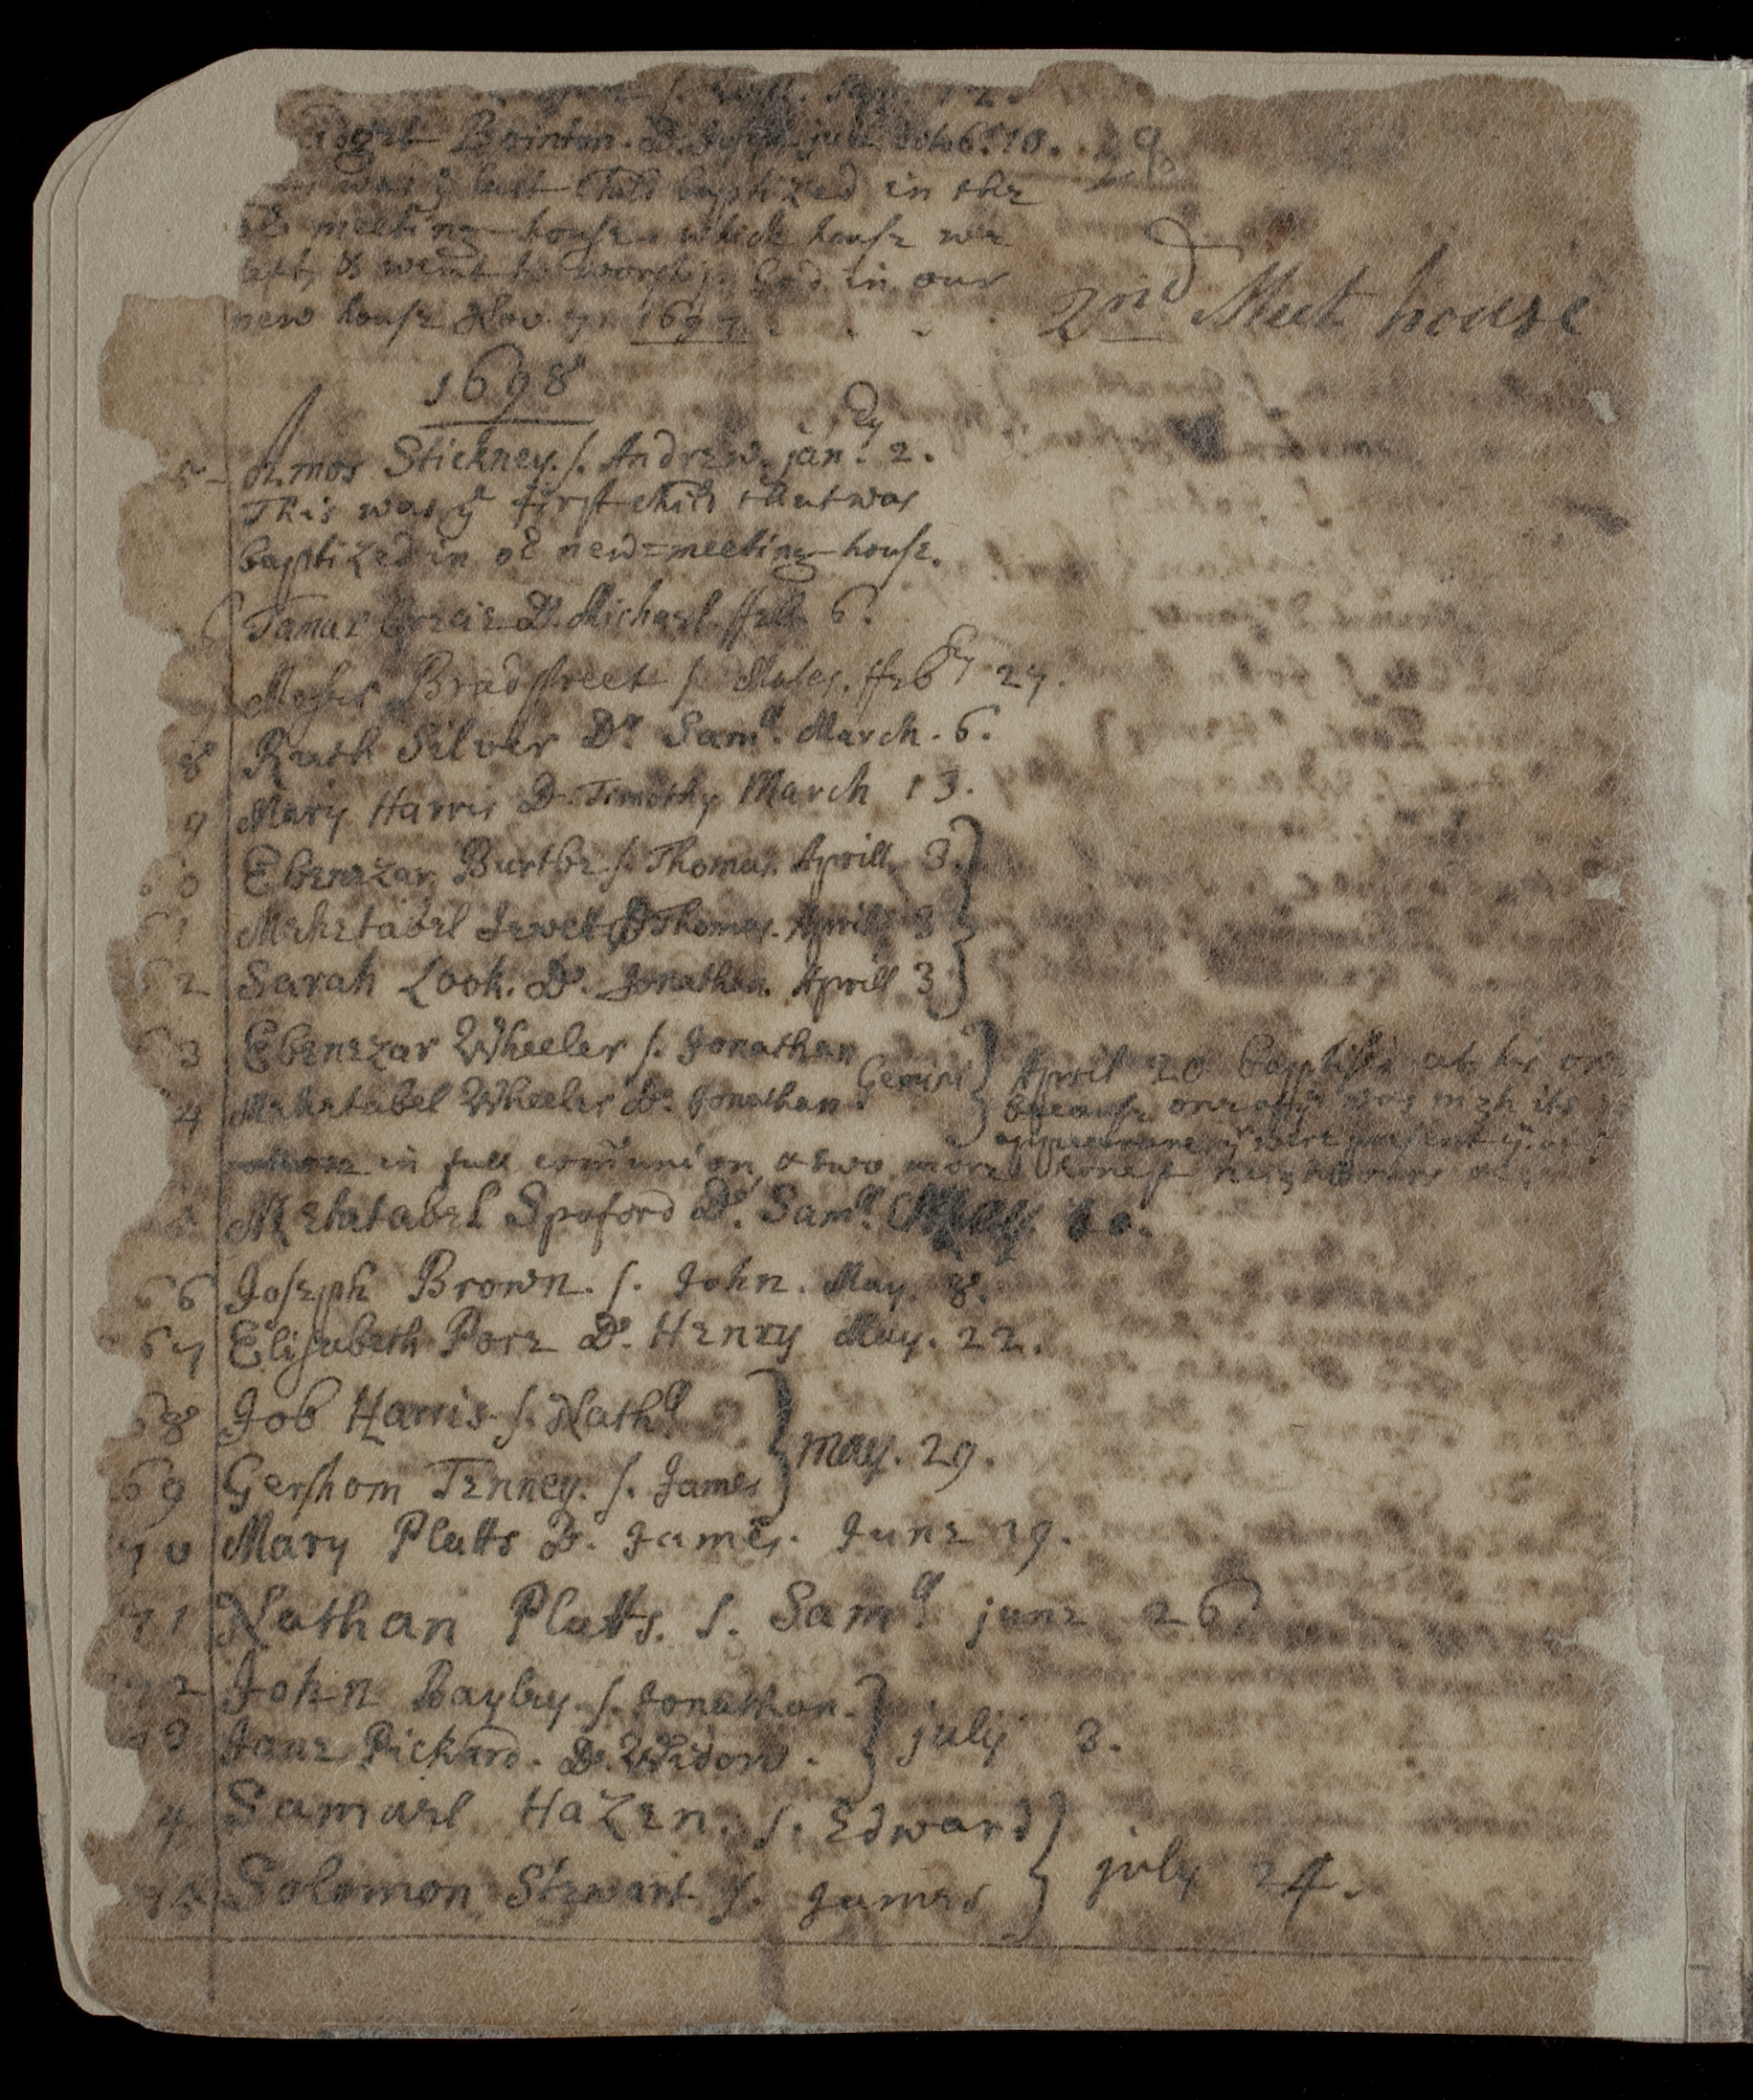 Bointon. D. 10. 29
was ye last Child baptized in the
meeting-house which house we
left, & went to worship God in our
new house Nov. 7. 1697.
2nd Meet house
1698
Amos Stickney. s. Andrew. janry 2.
This was ye first child that was
baptized in oe new=meeting-house.
6 Tamar D. Michael. ffeb 6.
7 Moses Bradstreet s. Moses. ffebry 27.
8 Ruth Silver Dr. Samll. March. 6.
9 Mary Harris D. Timothy March 13.
60 Ebenezar Burtbe s. Thomas. Aprill. 3.
61 Mehetabel Jewet D Thomas. Aprill 3
62 Sarah Look. Dr. Jonathan. Aprill 3
63 Ebenezar Wheeler s. Jonathan
4 Mehetabel Wheeler Dr. Jonathan. Gemini
April 20 baptised at his
because one of ym was nigh its
were present
in full comunion, & two more honest neighbours
5 Mehetabel Spoford Dr. Samll. May
66 Joseph Brown. s. John. May. 8.
67 Elisabeth Pore Dr. Henry May. 22.
68 Job Harris s. Nathll
69 Gershom Tenney. s. James
may. 29.
70 Mary Platts D. James. June 19.
71 Nathan Platts. s. Samll june 26
72 John Bayley. s. Jonathan.
73 Jane Pickard. Dr. Widow.
july 3.
4 Samuel Hazen. s. Edward
75 Solomon Stewart s. James
july 24.